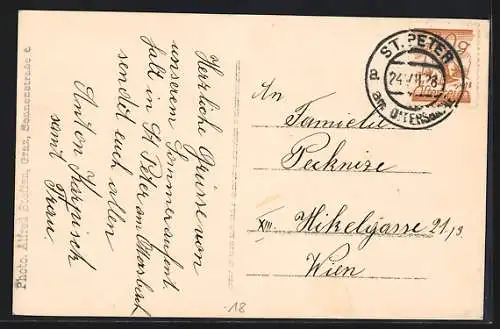 Herrliche Grüsse von
unserem Sommeraufent
halt in St Peter am Ottersbach
sendet euch allen
Anton Karnisch
samt Frau
Photo. Alfred Steffen, Graz, Sonnenstraße 6
ST. PETER
a 24.VII.28
am OTTERSBACH
g
An
Familie
Pecknize
XIII. Hikelgasse 21/9
Wien
18